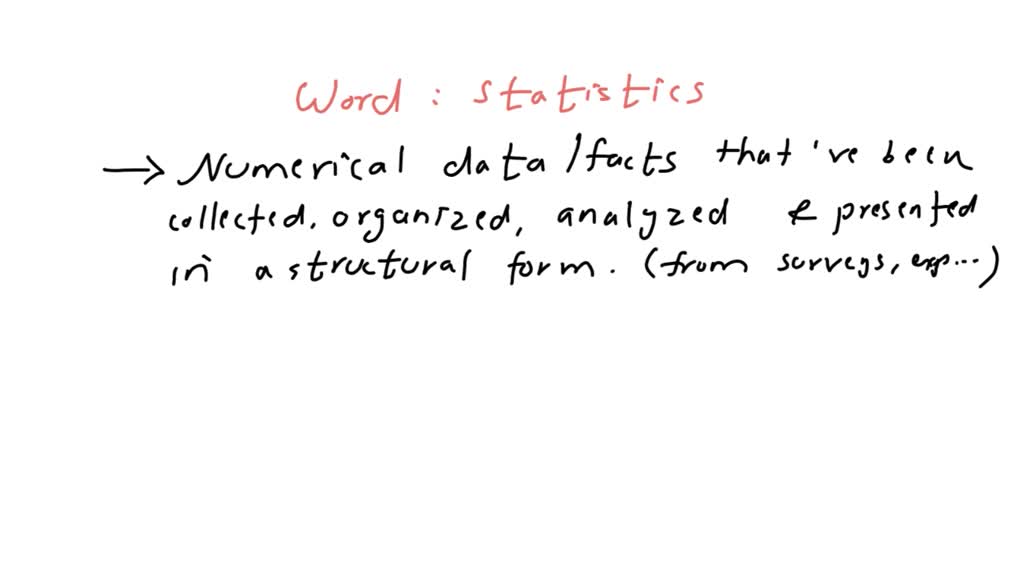 Word : statistics
→ Numerical data/facts that've been
collected, organized, analyzed & presented
in a structural form. (from surveys, exp...)